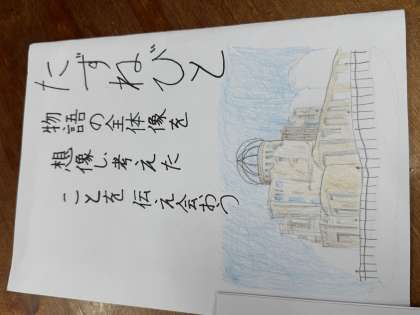 たずねびと
物語の全体像を
想像し、考えた
ことを伝え会おう